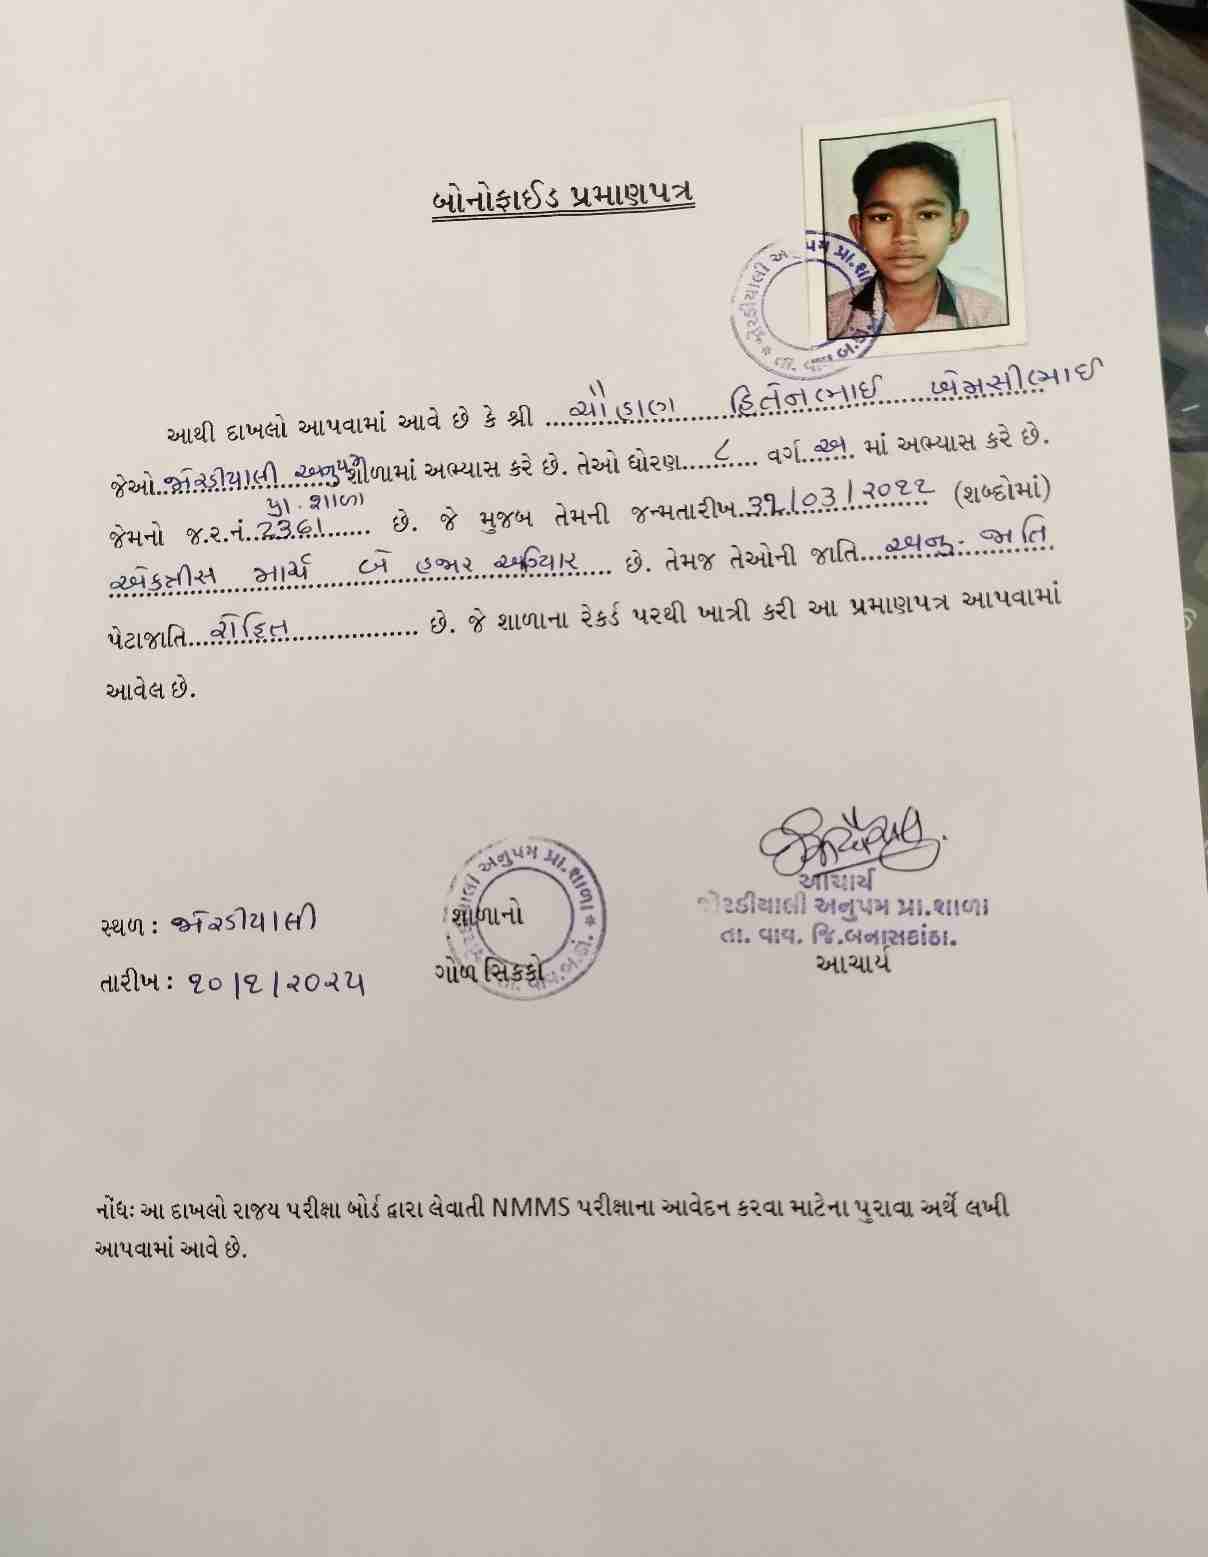 બોનોફાઈડ પ્રમાણપત્ર
અનુપમ પ્રા.શા
તા. વાવ બ.કાં.
આથી દાખલો આપવામાં આવે છે કે શ્રી ચૌહાણ હિતેનભાઈ ખેમસીભાઈ
જેઓ જોરડીયાલી અનુપમ શાળામાં અભ્યાસ કરે છે. તેઓ ધોરણ ૮ વર્ગ અ માં અભ્યાસ કરે છે.
પ્રા. શાળા
જેમનો જ.ર.નં. 2361 છે. જે મુજબ તેમની જન્મતારીખ ૩૧/૦૩/૨૦૧૧ (શબ્દોમાં)
એકત્રીસ માર્ચ બે હજાર અગિયાર છે. તેમજ તેઓની જાતિ અનુ. જાતિ
પેટાજાતિ રોહિત છે. જે શાળાના રેકર્ડ પરથી ખાત્રી કરી આ પ્રમાણપત્ર આપવામાં
આવેલ છે.
આચાર્ય
જોરડીયાલી અનુપમ પ્રા.શાળા
તા. વાવ. જિ.બનાસકાંઠા.
આચાર્ય
સ્થળ : જોરડીયાલી
તારીખ : ૧૦/૧/૨૦૨૫
અનુપમ પ્રા.શાળા
શાળાનો
ગોળ સિકકો
નોંધઃ આ દાખલો રાજય પરીક્ષા બોર્ડ દ્વારા લેવાતી NMMS પરીક્ષાના આવેદન કરવા માટેના પુરાવા અર્થે લખી
આપવામાં આવે છે.